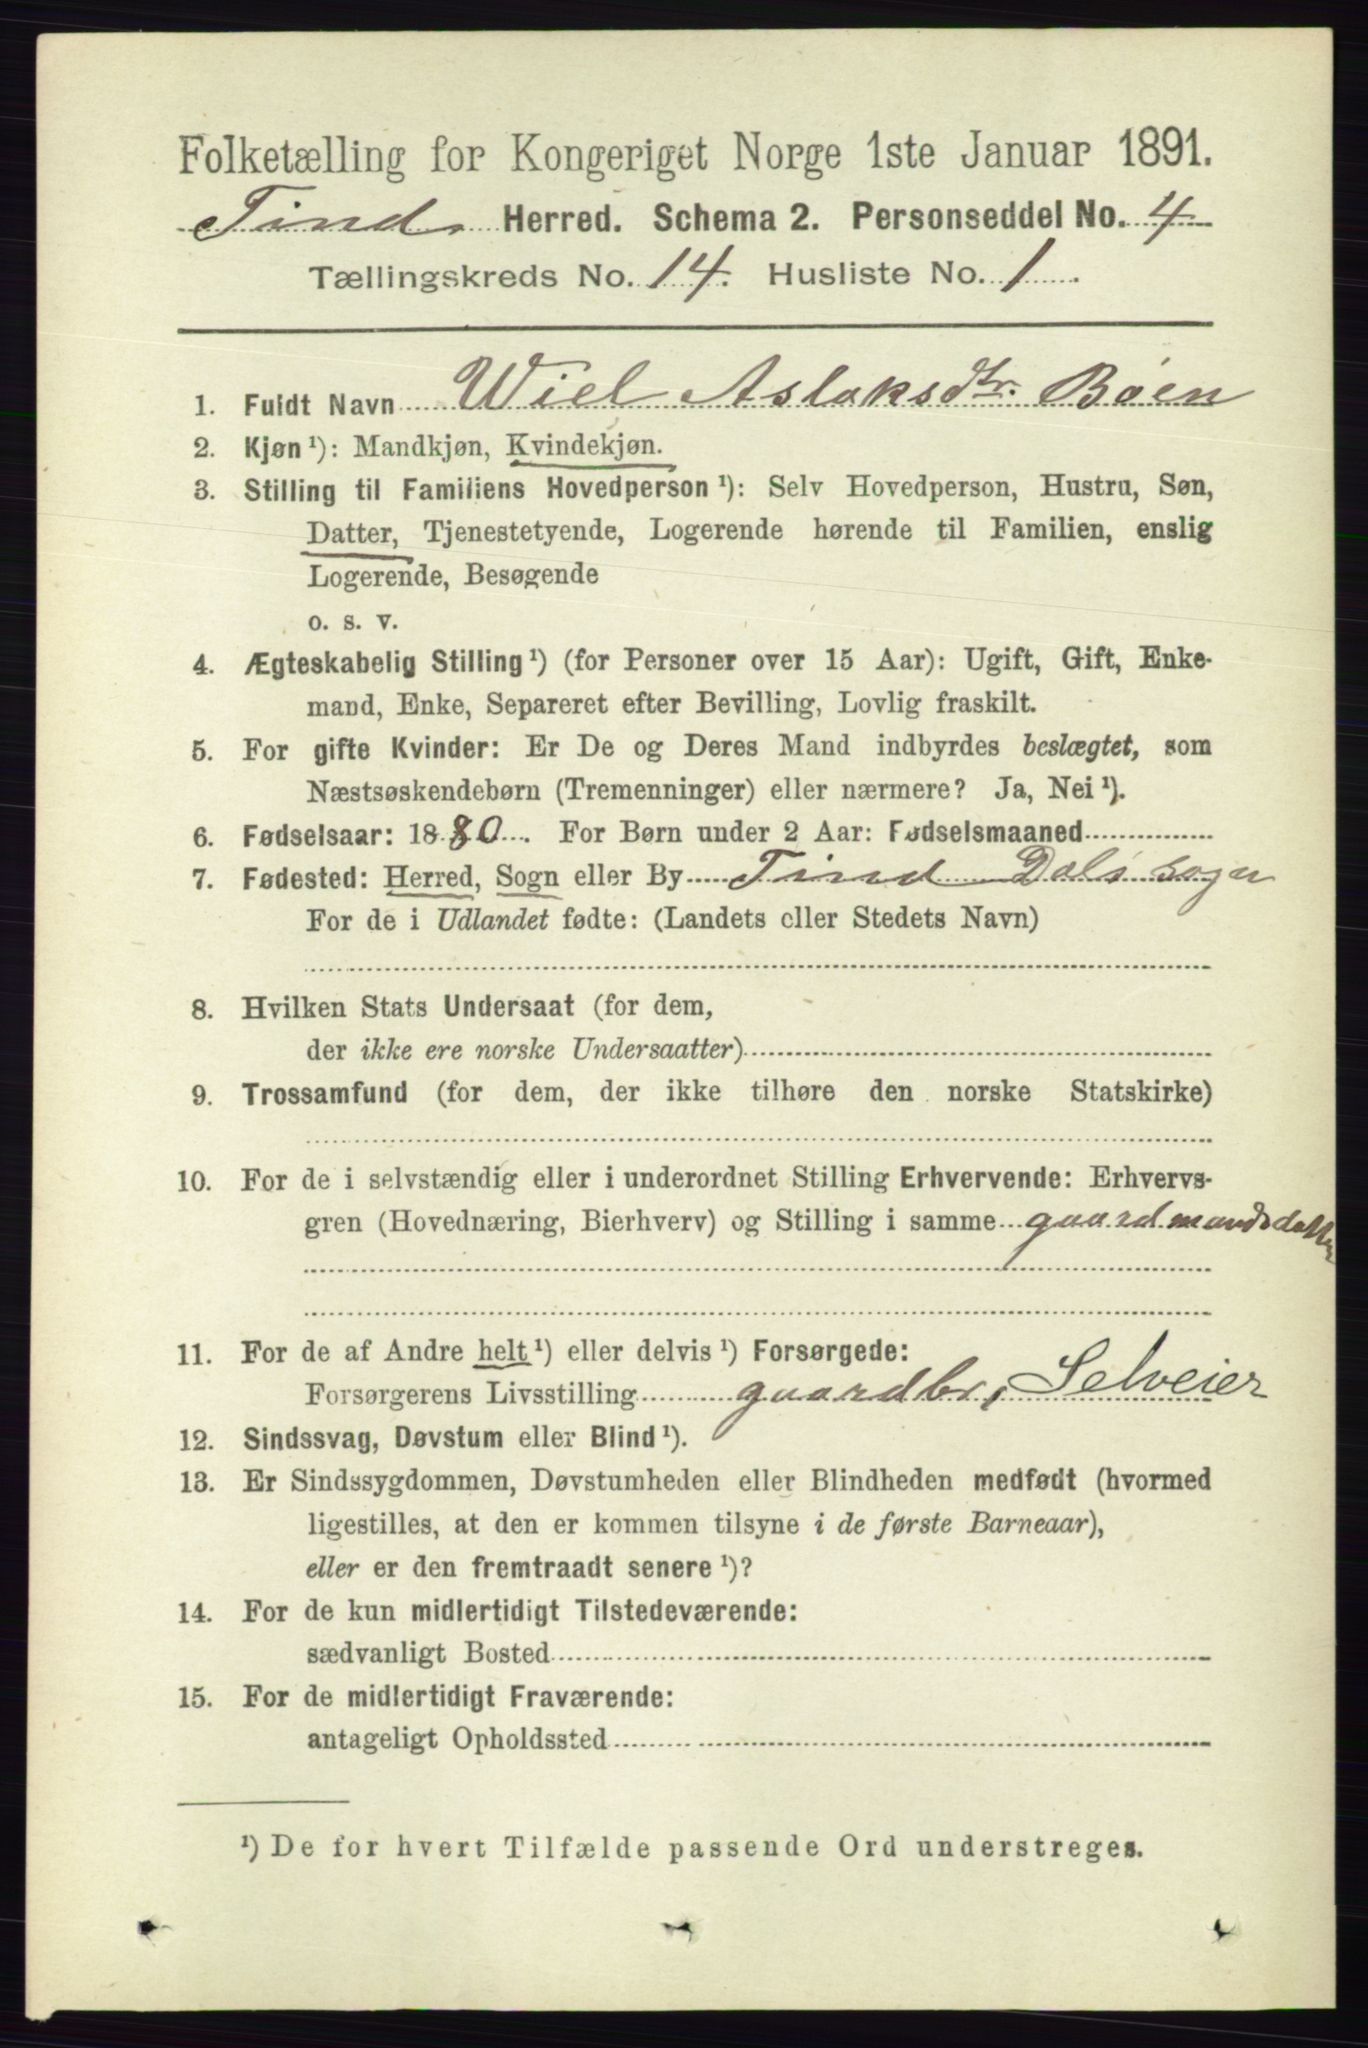 Folketælling for Kongeriget Norge 1ste Januar 1891.
Tinds Herred. Schema 2. Personseddel No. 4
Tællingskreds No. 14. Husliste No. 1
1. Fuldt Navn Wiel Aslaksdtr. Bøen
2. Kjøn ¹): Mandkjøn, Kvindekjøn.
3. Stilling til Familiens Hovedperson ¹): Selv Hovedperson, Hustru, Søn,
Datter, Tjenestetyende, Logerende hørende til Familien, enslig
Logerende, Besøgende
o. s. v.
4. Ægteskabelig Stilling ¹) (for Personer over 15 Aar): Ugift, Gift, Enke-
mand, Enke, Separeret efter Bevilling, Lovlig fraskilt.
5. For gifte Kvinder: Er De og Deres Mand indbyrdes beslægtet, som
Næstsøskendebørn (Tremenninger) eller nærmere? Ja, Nei ¹).
6. Fødselsaar: 1880. For Børn under 2 Aar: Fødselsmaaned
7. Fødested: Herred, Sogn eller By Tind Dals sogn
For de i Udlandet fødte: (Landets cller Stedets Navn)
8. Hvilken Stats Undersaat (for dem,
der ikke ere norske Undersaatter)
9. Trossamfund (for dem, der ikke tilhøre den norske Statskirke)
10. For de i selvstændig eller i underordnet Stilling Erhvervende: Erhvervs-
gren (Hovednæring, Bierhverv) og Stilling i samme gaardmandsdatter
11. For de af Andre helt ¹) eller delvis ¹) Forsørgede:
Forsørgerens Livsstilling gaardbr, Selveier
12. Sindssvag, Døvstum eller Blind ¹).
13. Er Sindssygdommen, Døvstumheden eller Blindheden medfødt (hvormed
ligestilles, at den er kommen tilsyne i de første Barneaar),
eller er den fremtraadt senere ¹)?
14. For de kun midlertidigt Tilstedeværende:
sædvanligt Bosted
15. For de midlertidigt Fraværende:
antageligt Opholdssted
¹) De for hvert Tilfælde passende Ord understreges.